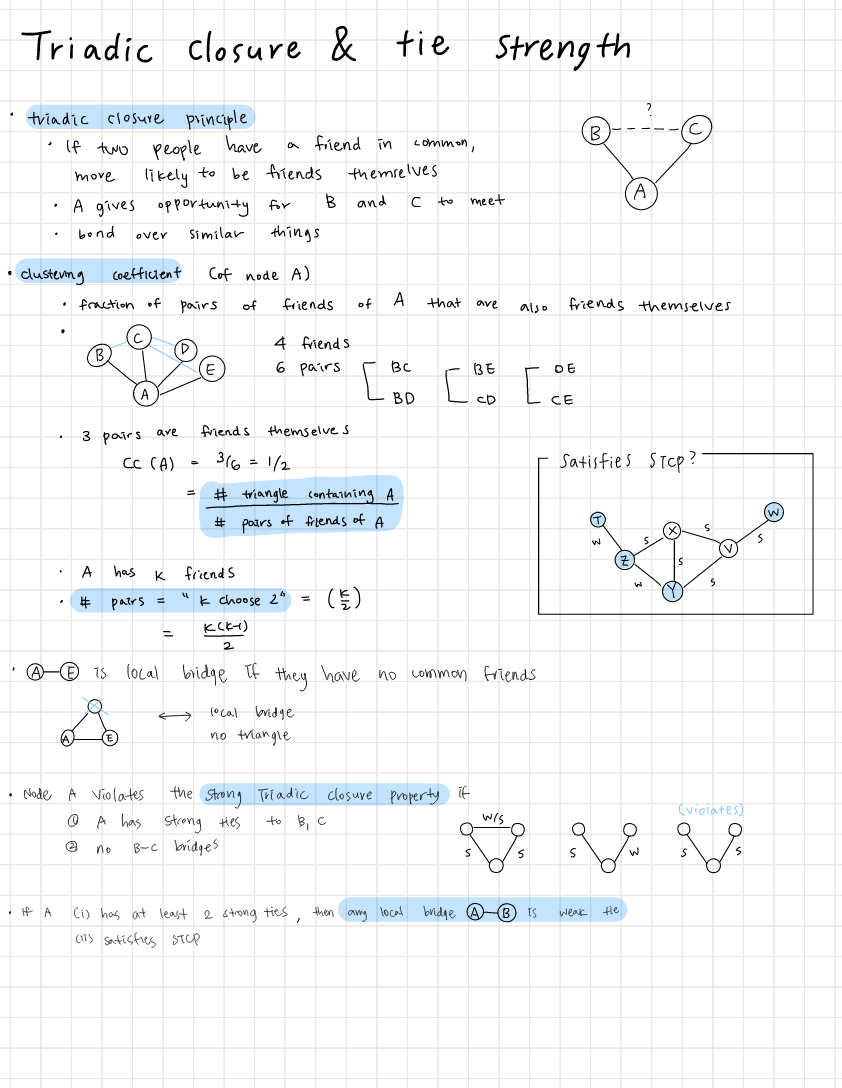 Triadic closure & tie strength
• triadic closure principle
• If two people have a friend in common,
more likely to be friends themselves
• A gives opportunity for B and C to meet
• bond over similar things
?
B C
A
• clustering coefficient (of node A)
• fraction of pairs of friends of A that are also friends themselves
•
B C D E
A
4 friends
6 pairs
BC BE DE
BD CD CE
• 3 pairs are friends themselves
CC (A) = 3/6 = 1/2
= # triangle containing A
# pairs of friends of A
Satisfies STCP?
T X W
w s s s
Z s V
w s
Y
• A has K friends
• # pairs = "K choose 2" = (K/2)
= K(K-1)
2
• A—E is local bridge if they have no common friends
A E
⟷ local bridge
no triangle
• Node A violates the strong Triadic closure property if
① A has strong ties to B, C
② no B-C bridges
(violates)
w/s
s s s w s s
• If A (i) has at least 2 strong ties, then any local bridge A—B is weak tie
(ii) satisfies STCP